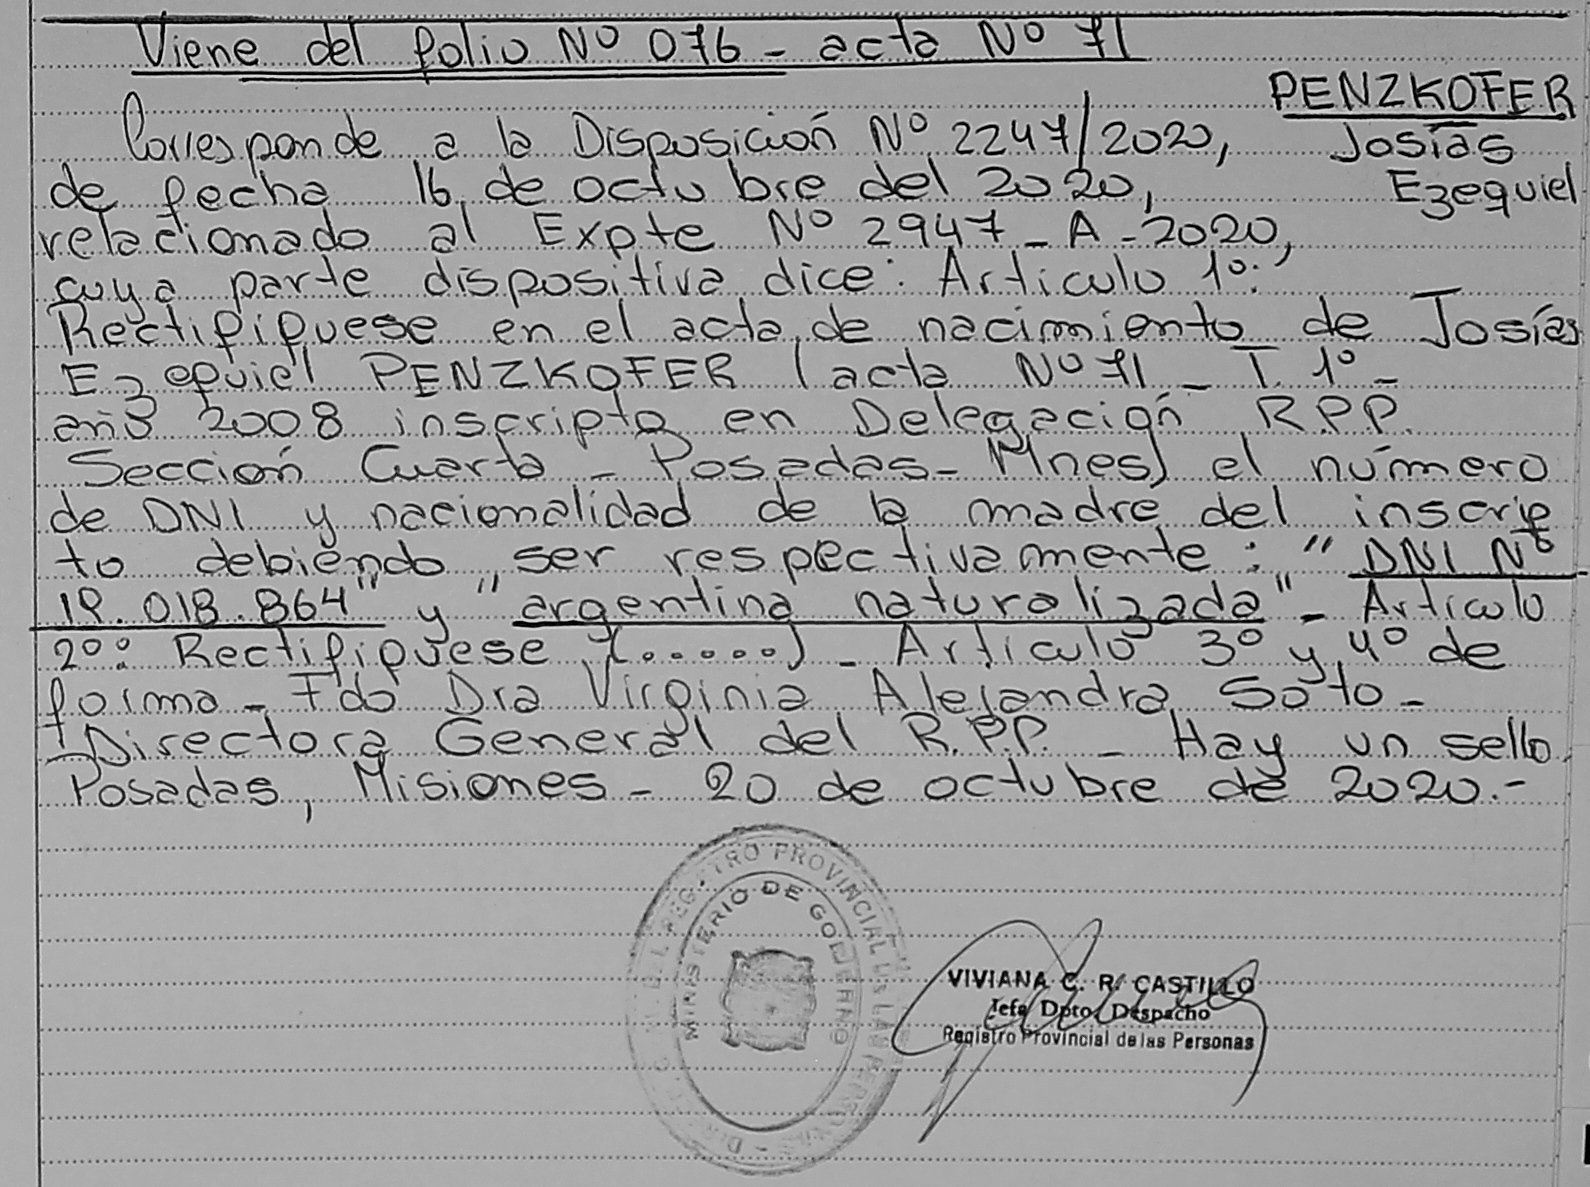 Viene del folio Nº 076 - acta Nº 71
PENZKOFER
Josías
Ezequiel
Corresponde a la Disposición Nº 2247/2020,
de fecha 16 de octubre del 2020,
relacionado al Expte Nº 2947 - A - 2020,
cuya parte dispositiva dice: Articulo 1º:
Rectifiquese en el acta de nacimiento de Josías
Ezequiel PENZKOFER (acta Nº 71 - T. 1º -
año 2008 inscripta en Delegación R.P.P.
Sección Cuarta - Posadas - Mnes) el número
de DNI y nacionalidad de la madre del inscrip
to debiendo ser respectivamente: "DNI Nº
18.018.864" y "argentina naturalizada" - Articulo
2º: Rectifiquese (......) - Articulo 3º y 4º de
forma - Fdo Dra Virginia Alejandra Soto -
Directora General del R.P.P. - Hay un sello.
Posadas, Misiones - 20 de octubre de 2020.-
REGISTRO PROVINCIAL DE LAS PERSONAS
MINISTERIO DE GOBIERNO
VIVIANA C. R. CASTILLO
Jefa Dpto. Despacho
Registro Provincial de las Personas